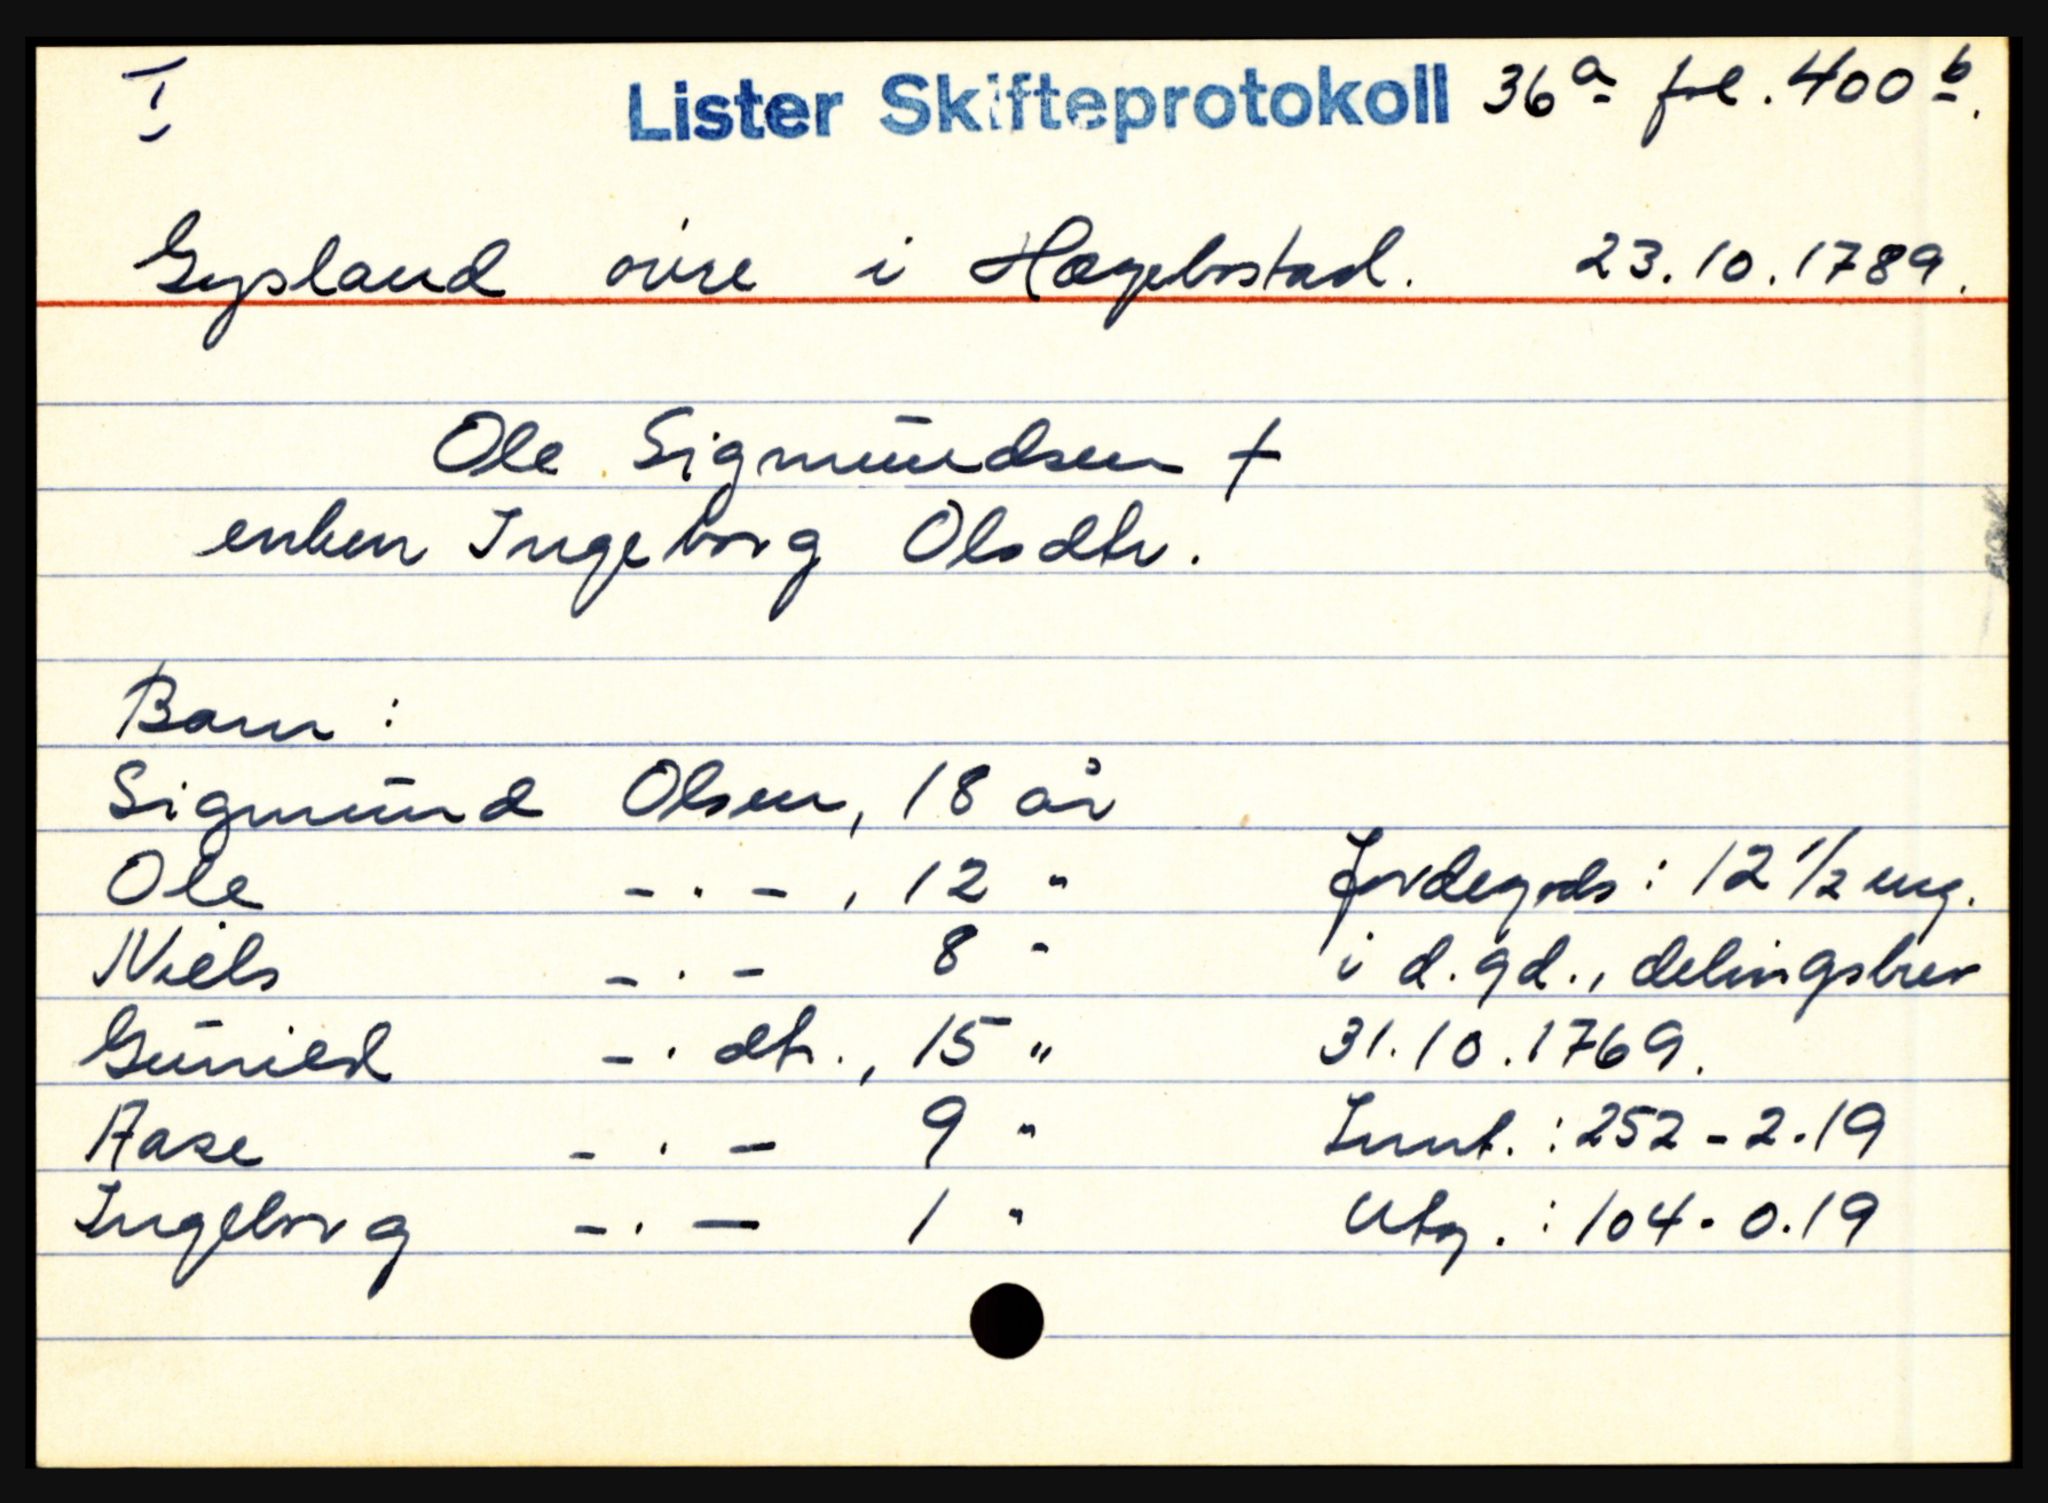 I
Lister Skifteprotokoll 36a fol. 400b.
Gysland øvre i Hægebostad. 23.10.1789.
Ole Sigmundsen †
enken Ingeborg Olsdtr.
Barn :
Sigmund Olsen, 18 år
Ole - " - , 12 " Jordegods : 12 1/2 eng.
Niels - " - 8 " i d. gd., delingsbrev
Gunild - " dtr., 15 " 31.10.1769.
Aase - " - 9 " Innt. : 252 - 2.19
Ingeborg - " - 1 " Utg. : 104 - 0.19